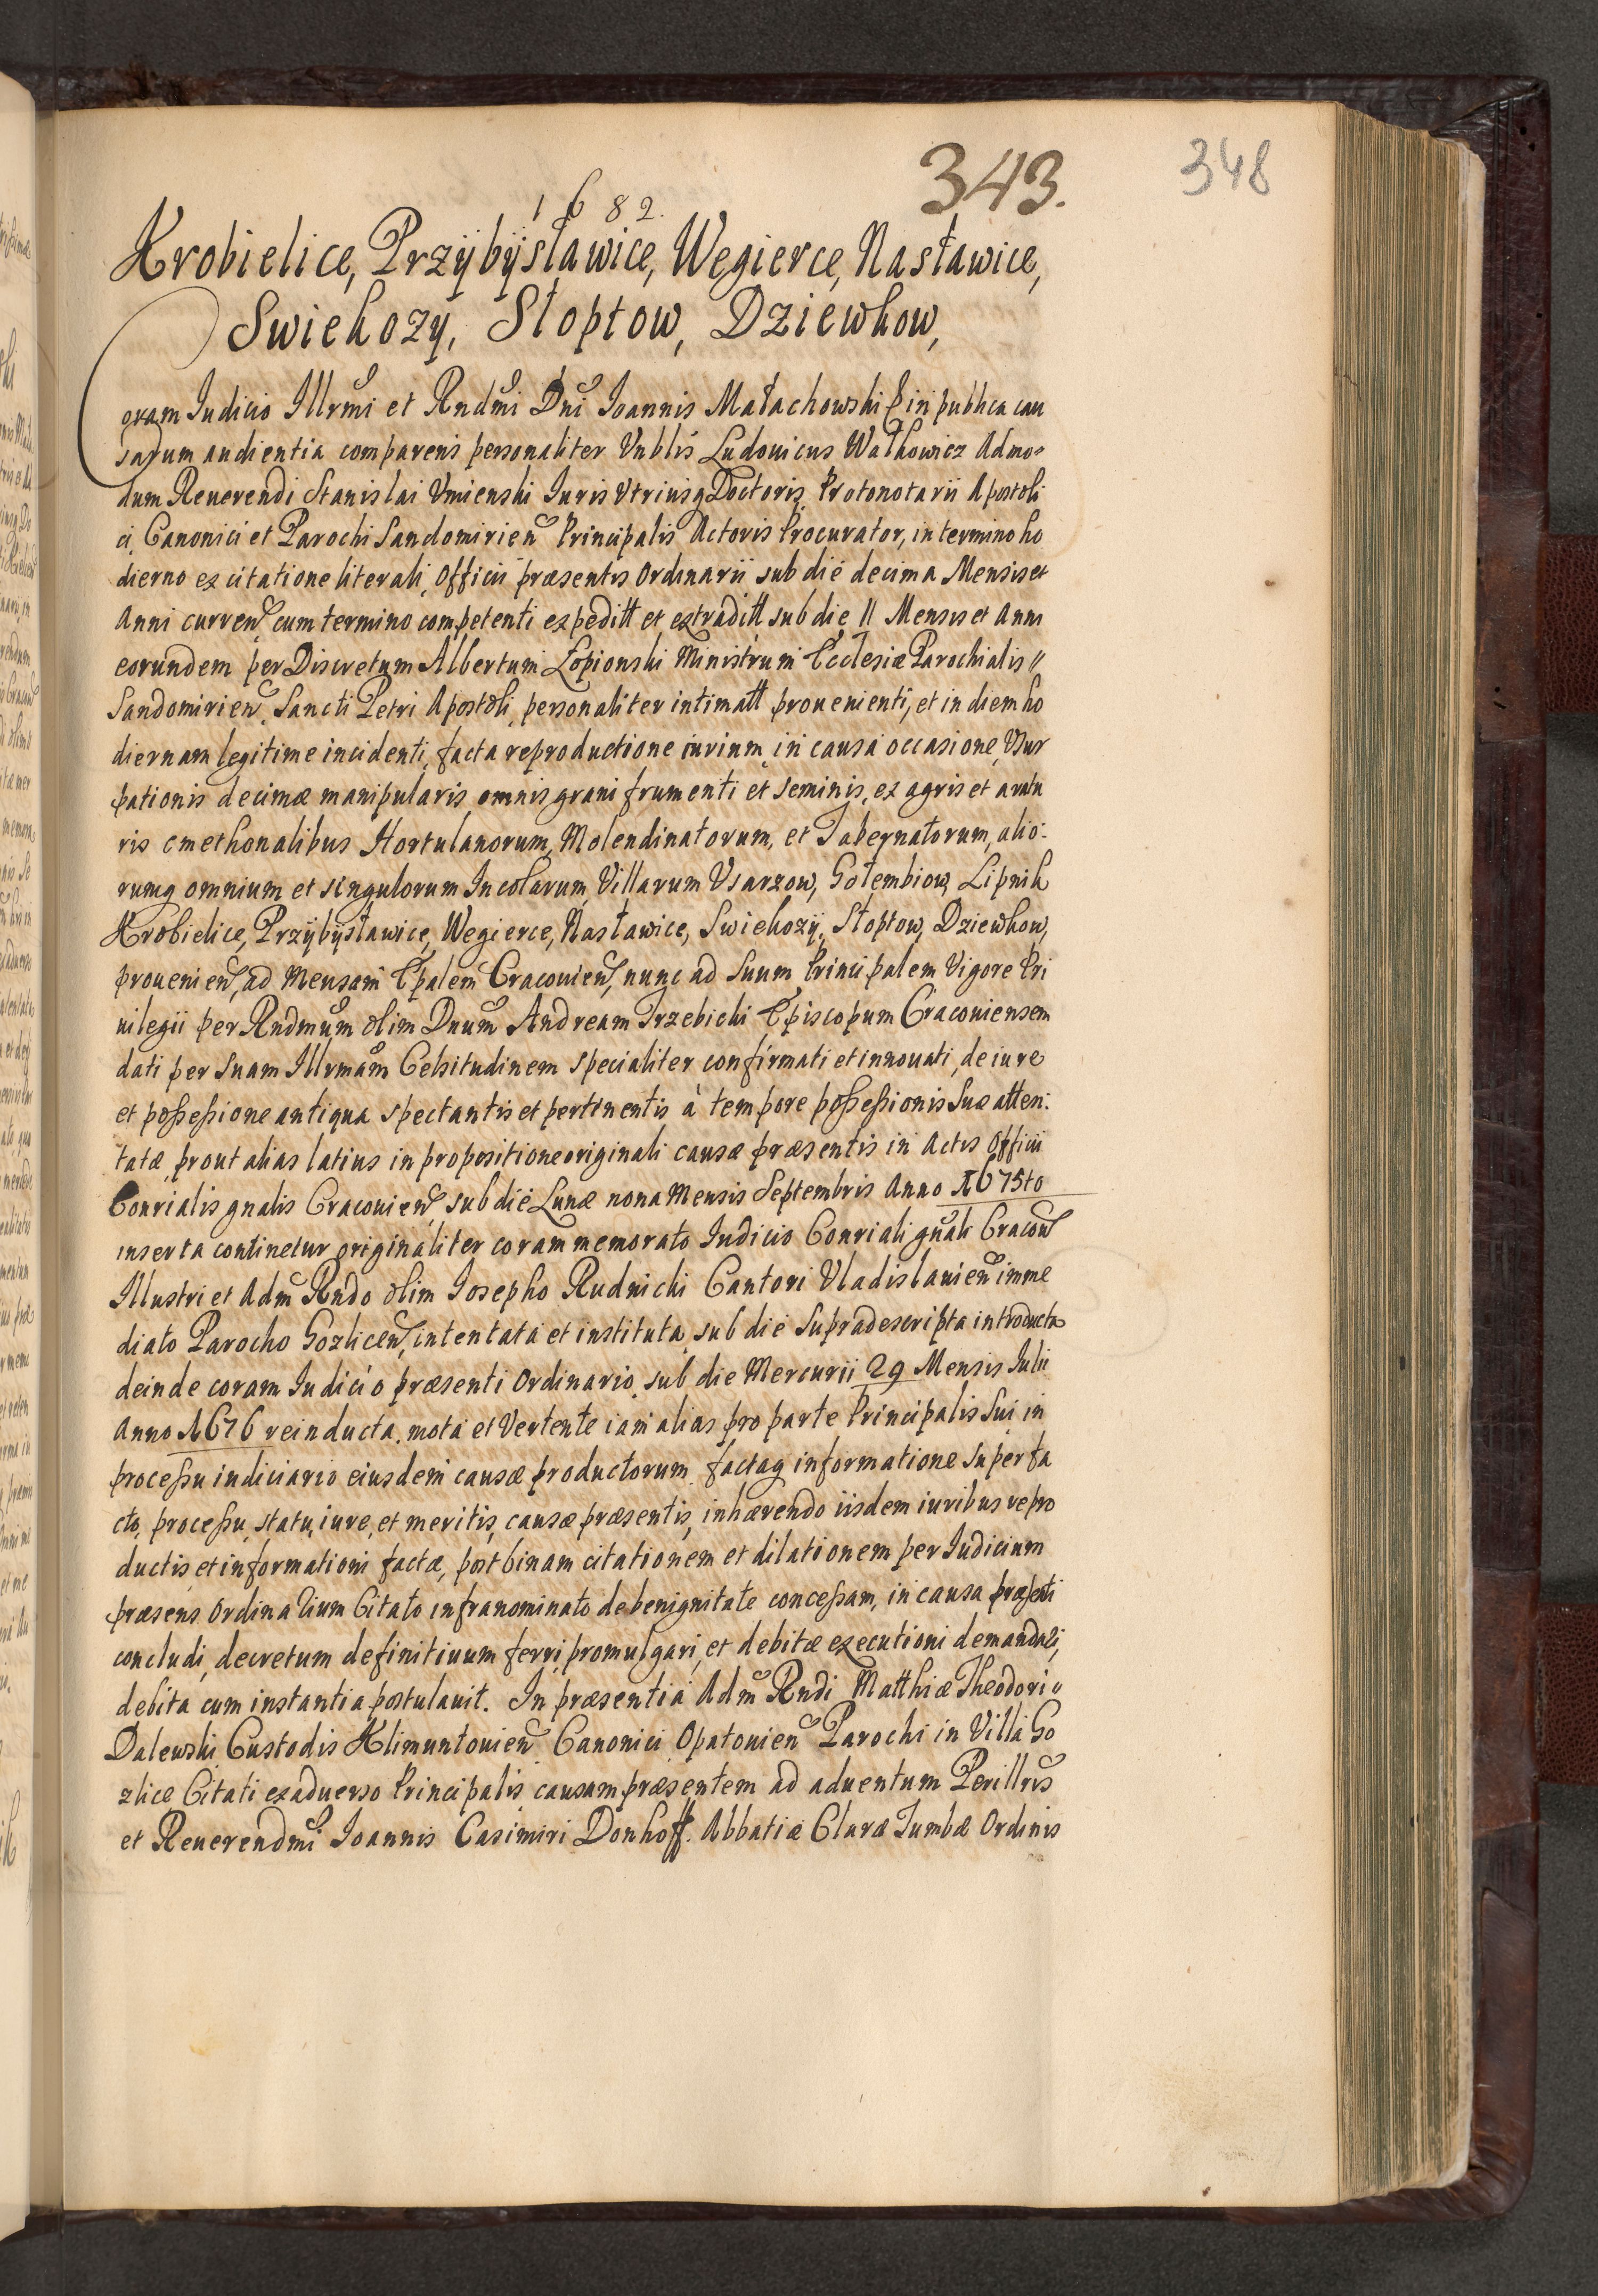 343.
348
1682.
Krobielice, Przÿbÿsławice, Węgierce, Nasławice,
Swiekozy, Słoptow, Dziewkow,
Coram Judicio Illrmi et Rndmi Dni Joannis Małachowski in publica cau
sarum audientia comparens personaliter Vnblis Ludouicus Walkowicz Admo-
dum Reuerendi Stanislai Vmienski Juris Vtriusq Doctoris Protonotarii Apostoli
ci, Canonici et Parochi Sandomirien Principalis Actoris Procurator, in termino ho
dierno ex citatione literali, Officii præsentis Ordinarii sub die decima Mensis et
Anni curren cum termino competenti expeditt et extraditt sub die 11 Mensis et Anni
eorundem per Discretum Albertum Łopionski Ministrum Ecclesiæ Parochialis
Sandomirien, Sancti Petri Apostoli, personaliter intimatt prouenienti, et in diem ho
diernam legitime incidenti, facta reproductione iurium, in causa occasione Vsur
pationis decimæ manipularis omnis grani frumenti et seminis, ex agris et aratu
ris cmethonalibus Hortulanorum, Molendinatorum, et Tabernatorum, alio:
rumq omnium et singulorum Incolarum Villarum Vsarzow, Gołembiow, Lipnik
Krobielice, Przÿbÿsławice, Wegierce, Nasławice, Swiekozÿ, Słoptow, Dziewkow,
prouenien, ad Mensam Epalem Cracouien, nunc ad Suum Principalem Vigore Pri
uilegii per Rndmum olim Dnum Andream Trzebicki Episcopum Cracouiensem
dati per Suam Illrmam Celsitudinem specialiter confirmati et innouati, de iure
et possessione antiqua spectantis et pertinentis à tempore possessionis Suæ atten:
tatæ prout alias latius in propositione originali causæ præsentis in Actis Officii
Conrialis gnalis Cracouien sub die Lunæ nona Mensis Septembris Anno 1675to
inserta continetur originaliter coram memorato Judicio Conriali gnali Cracou
Illustri et Adm Rndo olim Josepho Rudnicki Cantori Vladislauien imme
diato Parocho Gozlicen, intentata et instituta sub die Supradescripta introducta
deinde coram Judicio præsenti Ordinario sub die Mercurii 29 Mensis Julii
Anno 1676 reinducta mota et Vertente iam alias pro parte Principalis Sui in
processu iudiciario eiusdem causæ productorum factaq informatione Super fa
cto, processu, statu, iure, et meritis causæ præsentis, inhærendo iisdem iuribus repro
ductis et informationi factæ, post binam citationem et dilationem per Judicium
præsens Ordinarium Citato infranominato de benignitate concessam, in causa præsenti
concludi, decretum definitiuum ferri, promulgari, et debitæ executioni demandari,
debita cum instantia postulauit. In præsentia Adm Rndi Matthiæ Theodori
Dalewski Custodis Klimuntouien Canonici Opatouien Parochi in Villa Go
zlice Citati ex aduerso Principalis causam præsentem ad aduentum Perillris
et Reuerendmi Joannis Casimiri Donhoff. Abbatiæ Claræ Tumbæ Ordinis